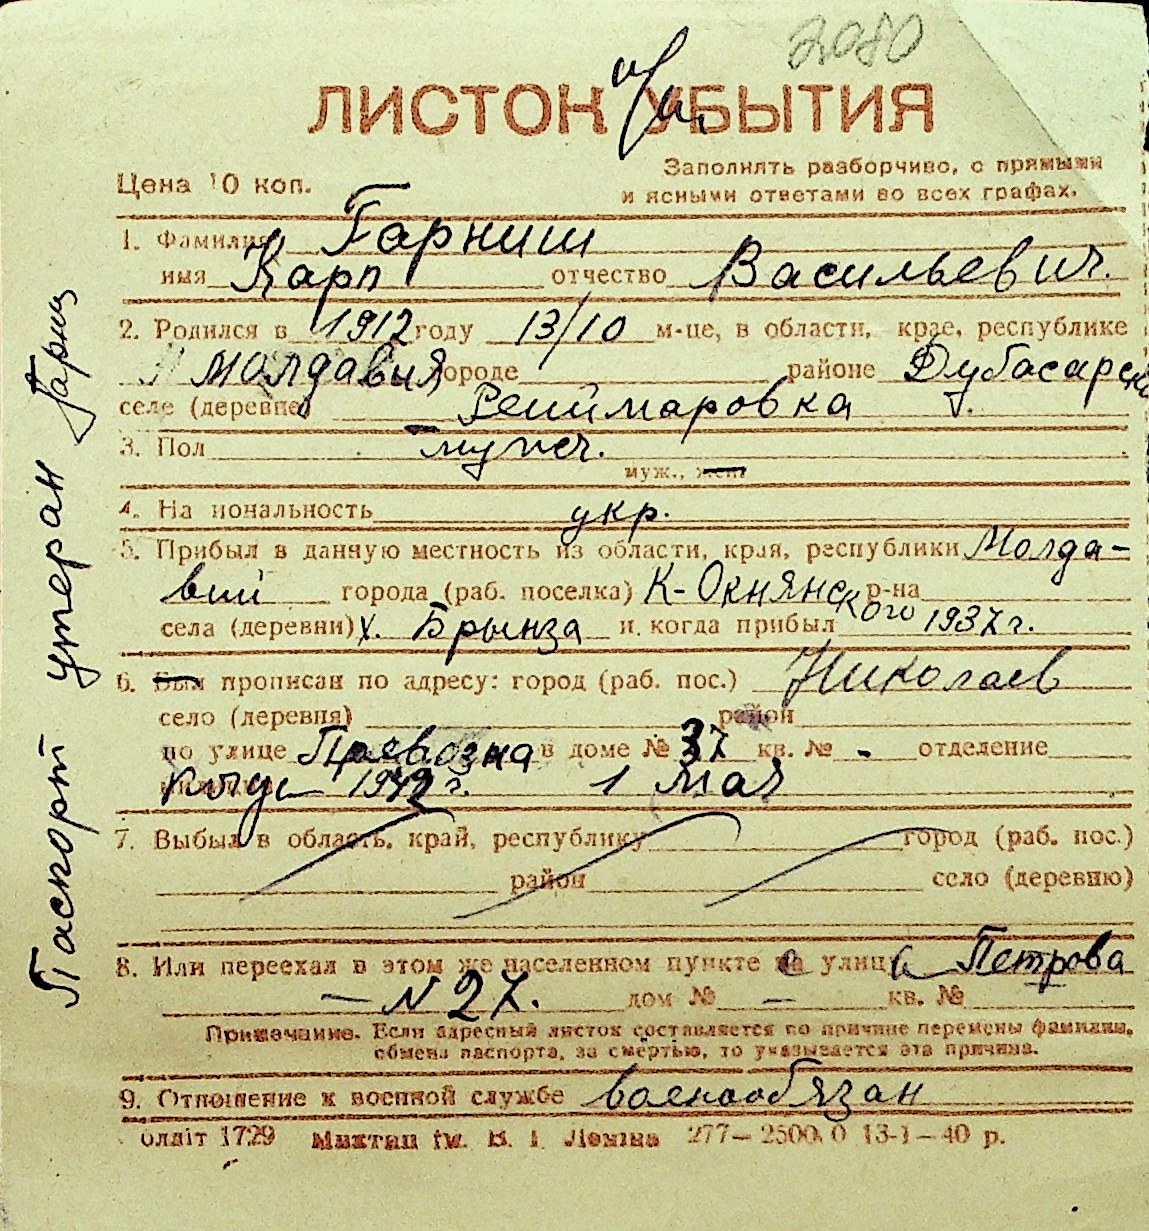 2080
ЛИСТОК УБЫТИЯ
Цена 10 коп.
Заполнять разборчиво, с прямыми
и ясными ответами во всех графах.
1. Фамилия Гарниш
имя Карп отчество Васильевич.
2. Родился в 1912 году 13/10 м-це, в области, крае, республике
Молдавия городе районе Дубасарск
селе (деревне) Реймаровка
3. Пол мужч.
муж., жен
4. Национальность укр.
5. Прибыл в данную местность из области, края, республики Молда-
вии города (раб. поселка) К-Окнянского р-на
села (деревни) х. Брынза и когда прибыл 1937 г.
6. Был прописан по адресу: город (раб. пос.) Николаев
село (деревня) район
по улице Привозна в доме № 37 кв. № - отделение
1942 г. 1 мая
7. Выбыл в область, край, республику город (раб. пос.)
район село (деревню)
8. Или переехал в этом же населенном пункте на улицу Петрова
— N 27. дом № — кв. №
Примечание. Если адресный листок составляется по причине перемены фамилии,
обмена паспорта, за смертью, то указывается эта причина.
9. Отношение к военной службе военообязан
облліт 1729 Миктип ім. В. І. Леніна 277—2500 0 13-1—40 р.
Паспорт утерян Гарниш